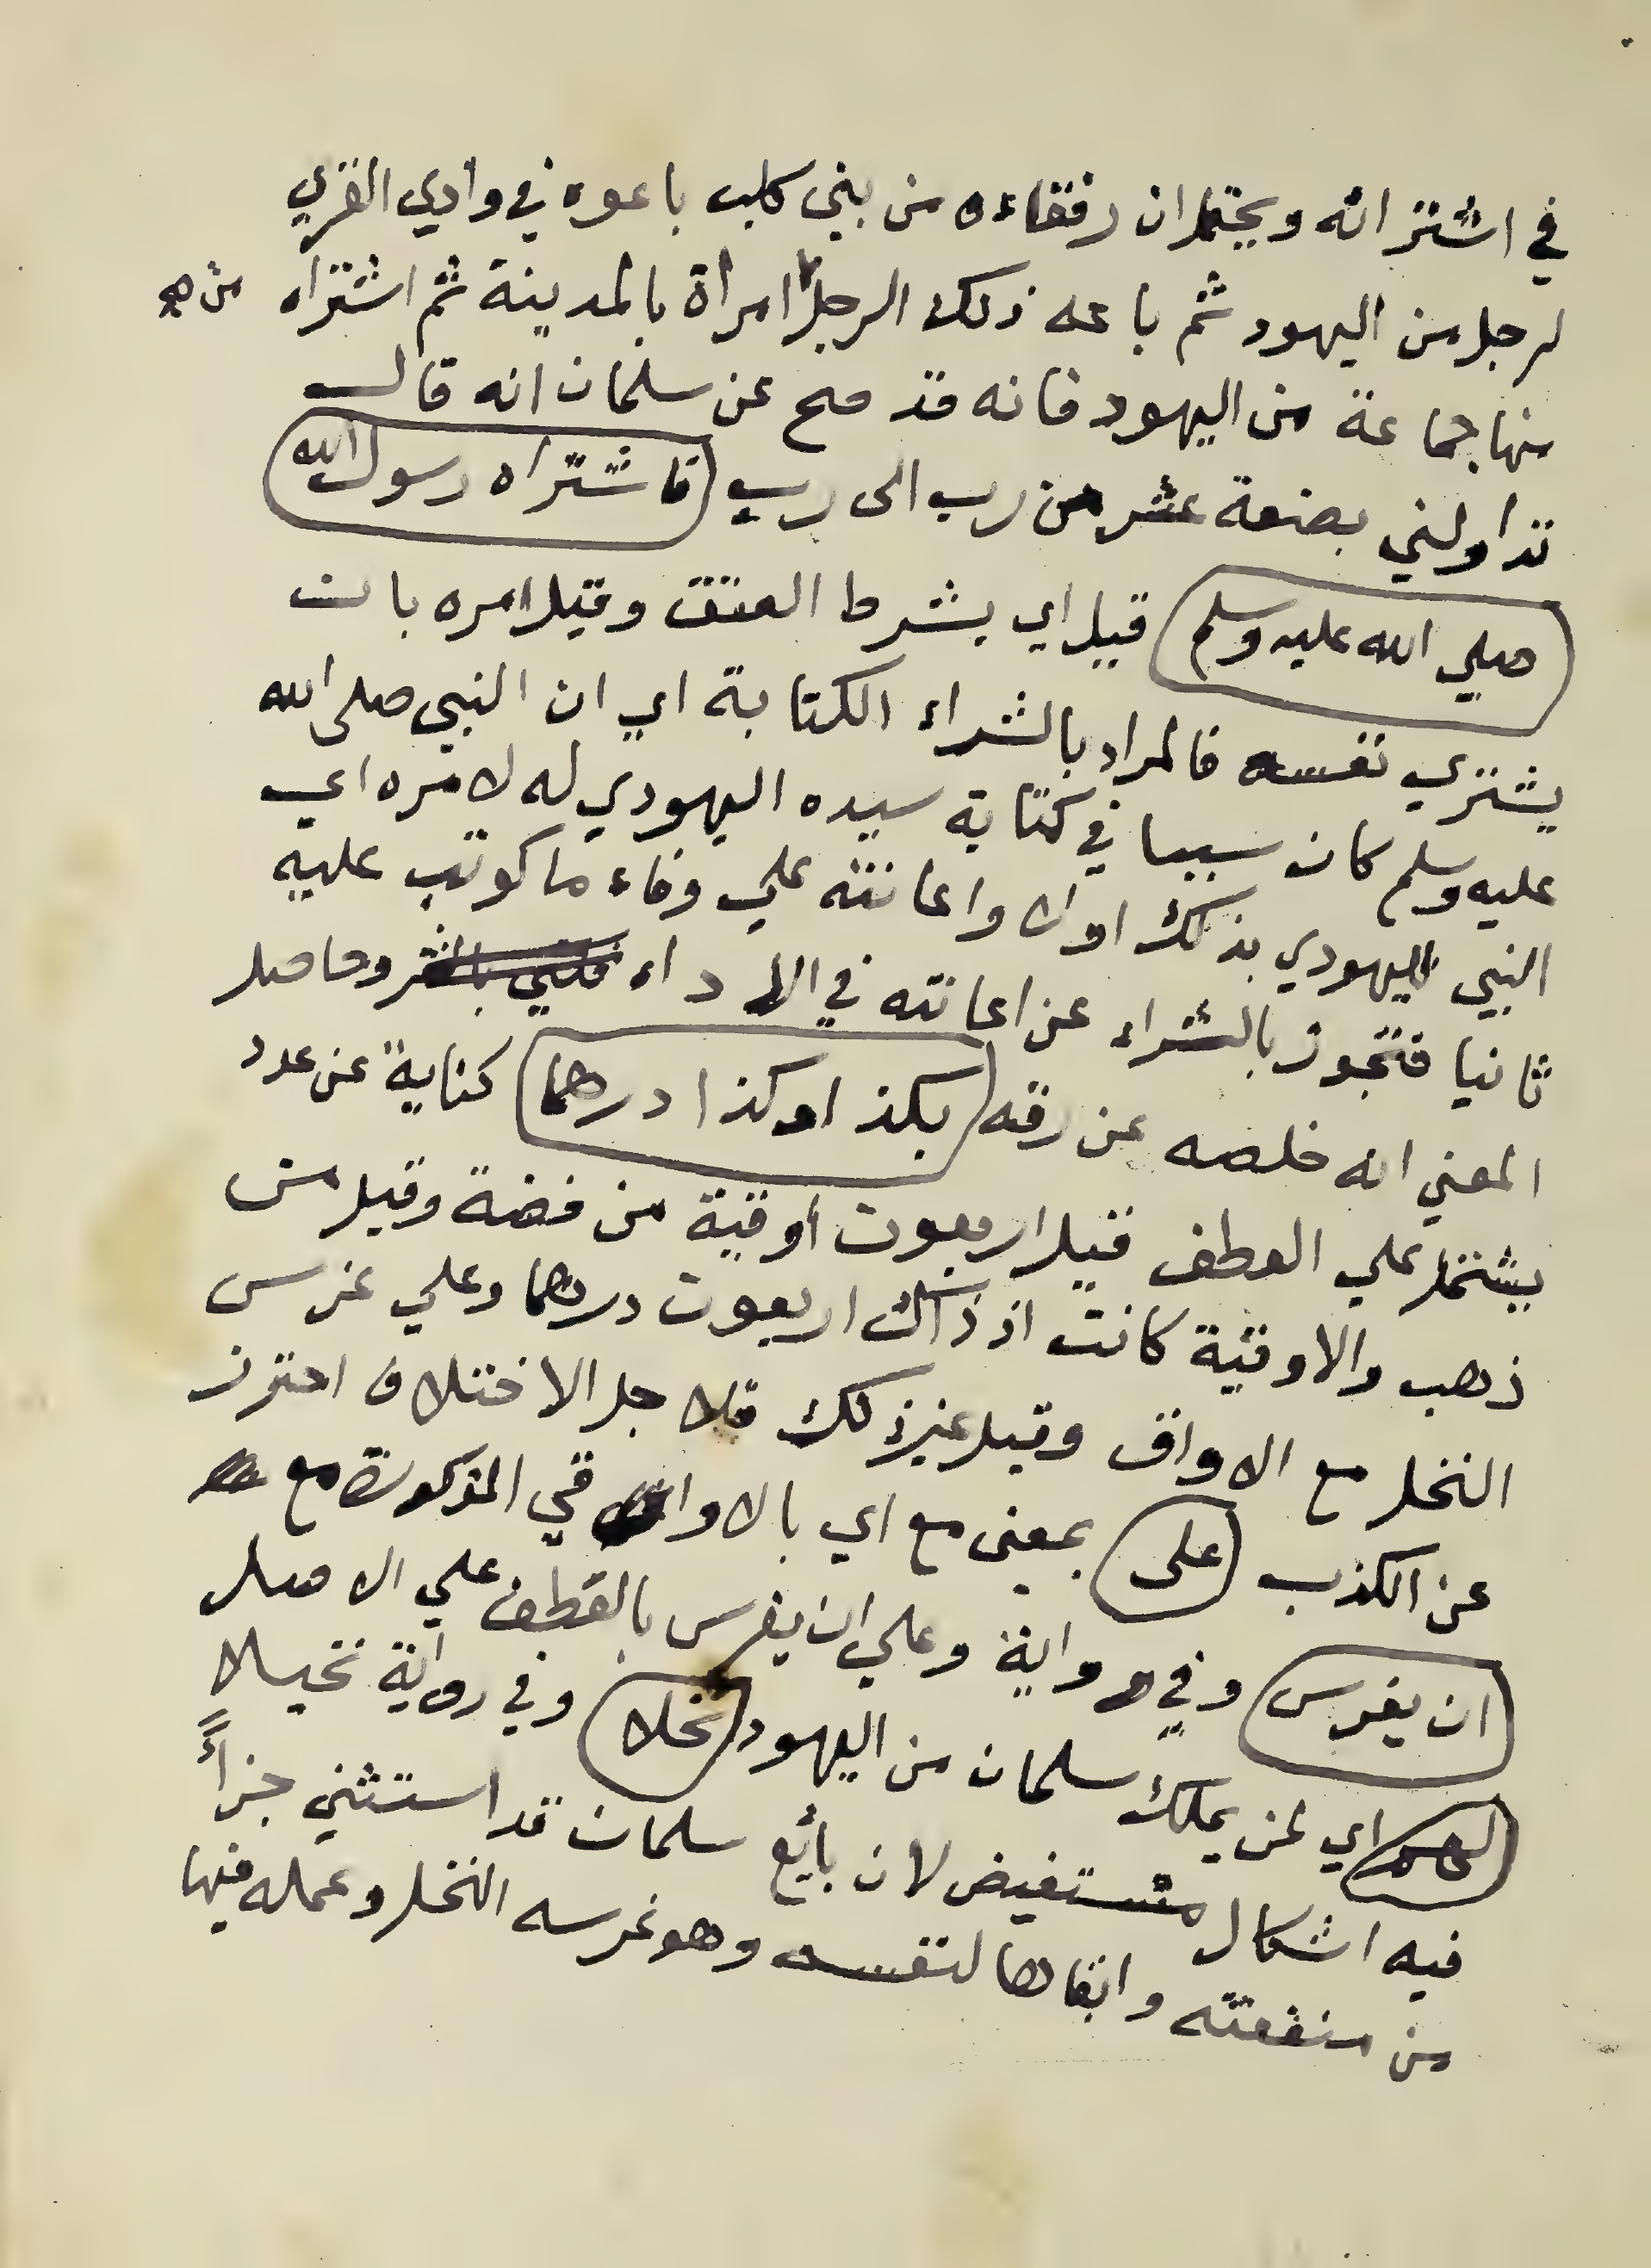 في اشترائه ويحتمل ان رفقاءه من بني كلب باعوه في وادي القري
لرجل من اليهود ثم باعه ذلك الرجل امرأة بالمدينة ثم اشتراه
منها جماعة من اليهود فانه قد صح عن سلمان انه قال
تداولني بضعة عشر من رب الى رب فاشتراه رسول الله
صلي الله عليه وسلم قيل اي بشرط العتق وقيل امره بان
يشتري نفسه فالمراد بالشراء الكتابة اي ان النبي صلى الله
عليه وسلم كان سببا في كتابة سيده اليهودي له لامره اي
النبي اليهودي بذلك اولا واعانته علي وفاء ما كوتب عليه
ثانيا فتجوز بالشراء عن اعانته في الاداء وحاصل
المعني انه خلصه عن رقه بكذا وكذا درهما كناية عن عدد
يشتمل علي العطف قيل اربعون اوقية من فضة وقيل من
ذهب والاوقية كانت اذ ذاك اربعون درهما وعلي غرس
النخل مع الاواق وقيل غير ذلك فلاجل الاختلاف احترز
عن الكذب على بمعنى مع اي بالاواقي المذكورة مع
ان يغرس وفي رواية وعلي ان يغرس بالعطف علي الاصل
لهم اي لمن يملك سلمان من اليهود نخلا وفي رواية نخيلا
فيه اشكال مستفيض لان بائع سلمان قد استثني جزأً
من منفعته وابقاها لنفسه وهو غرسه النخل وعمله فيها